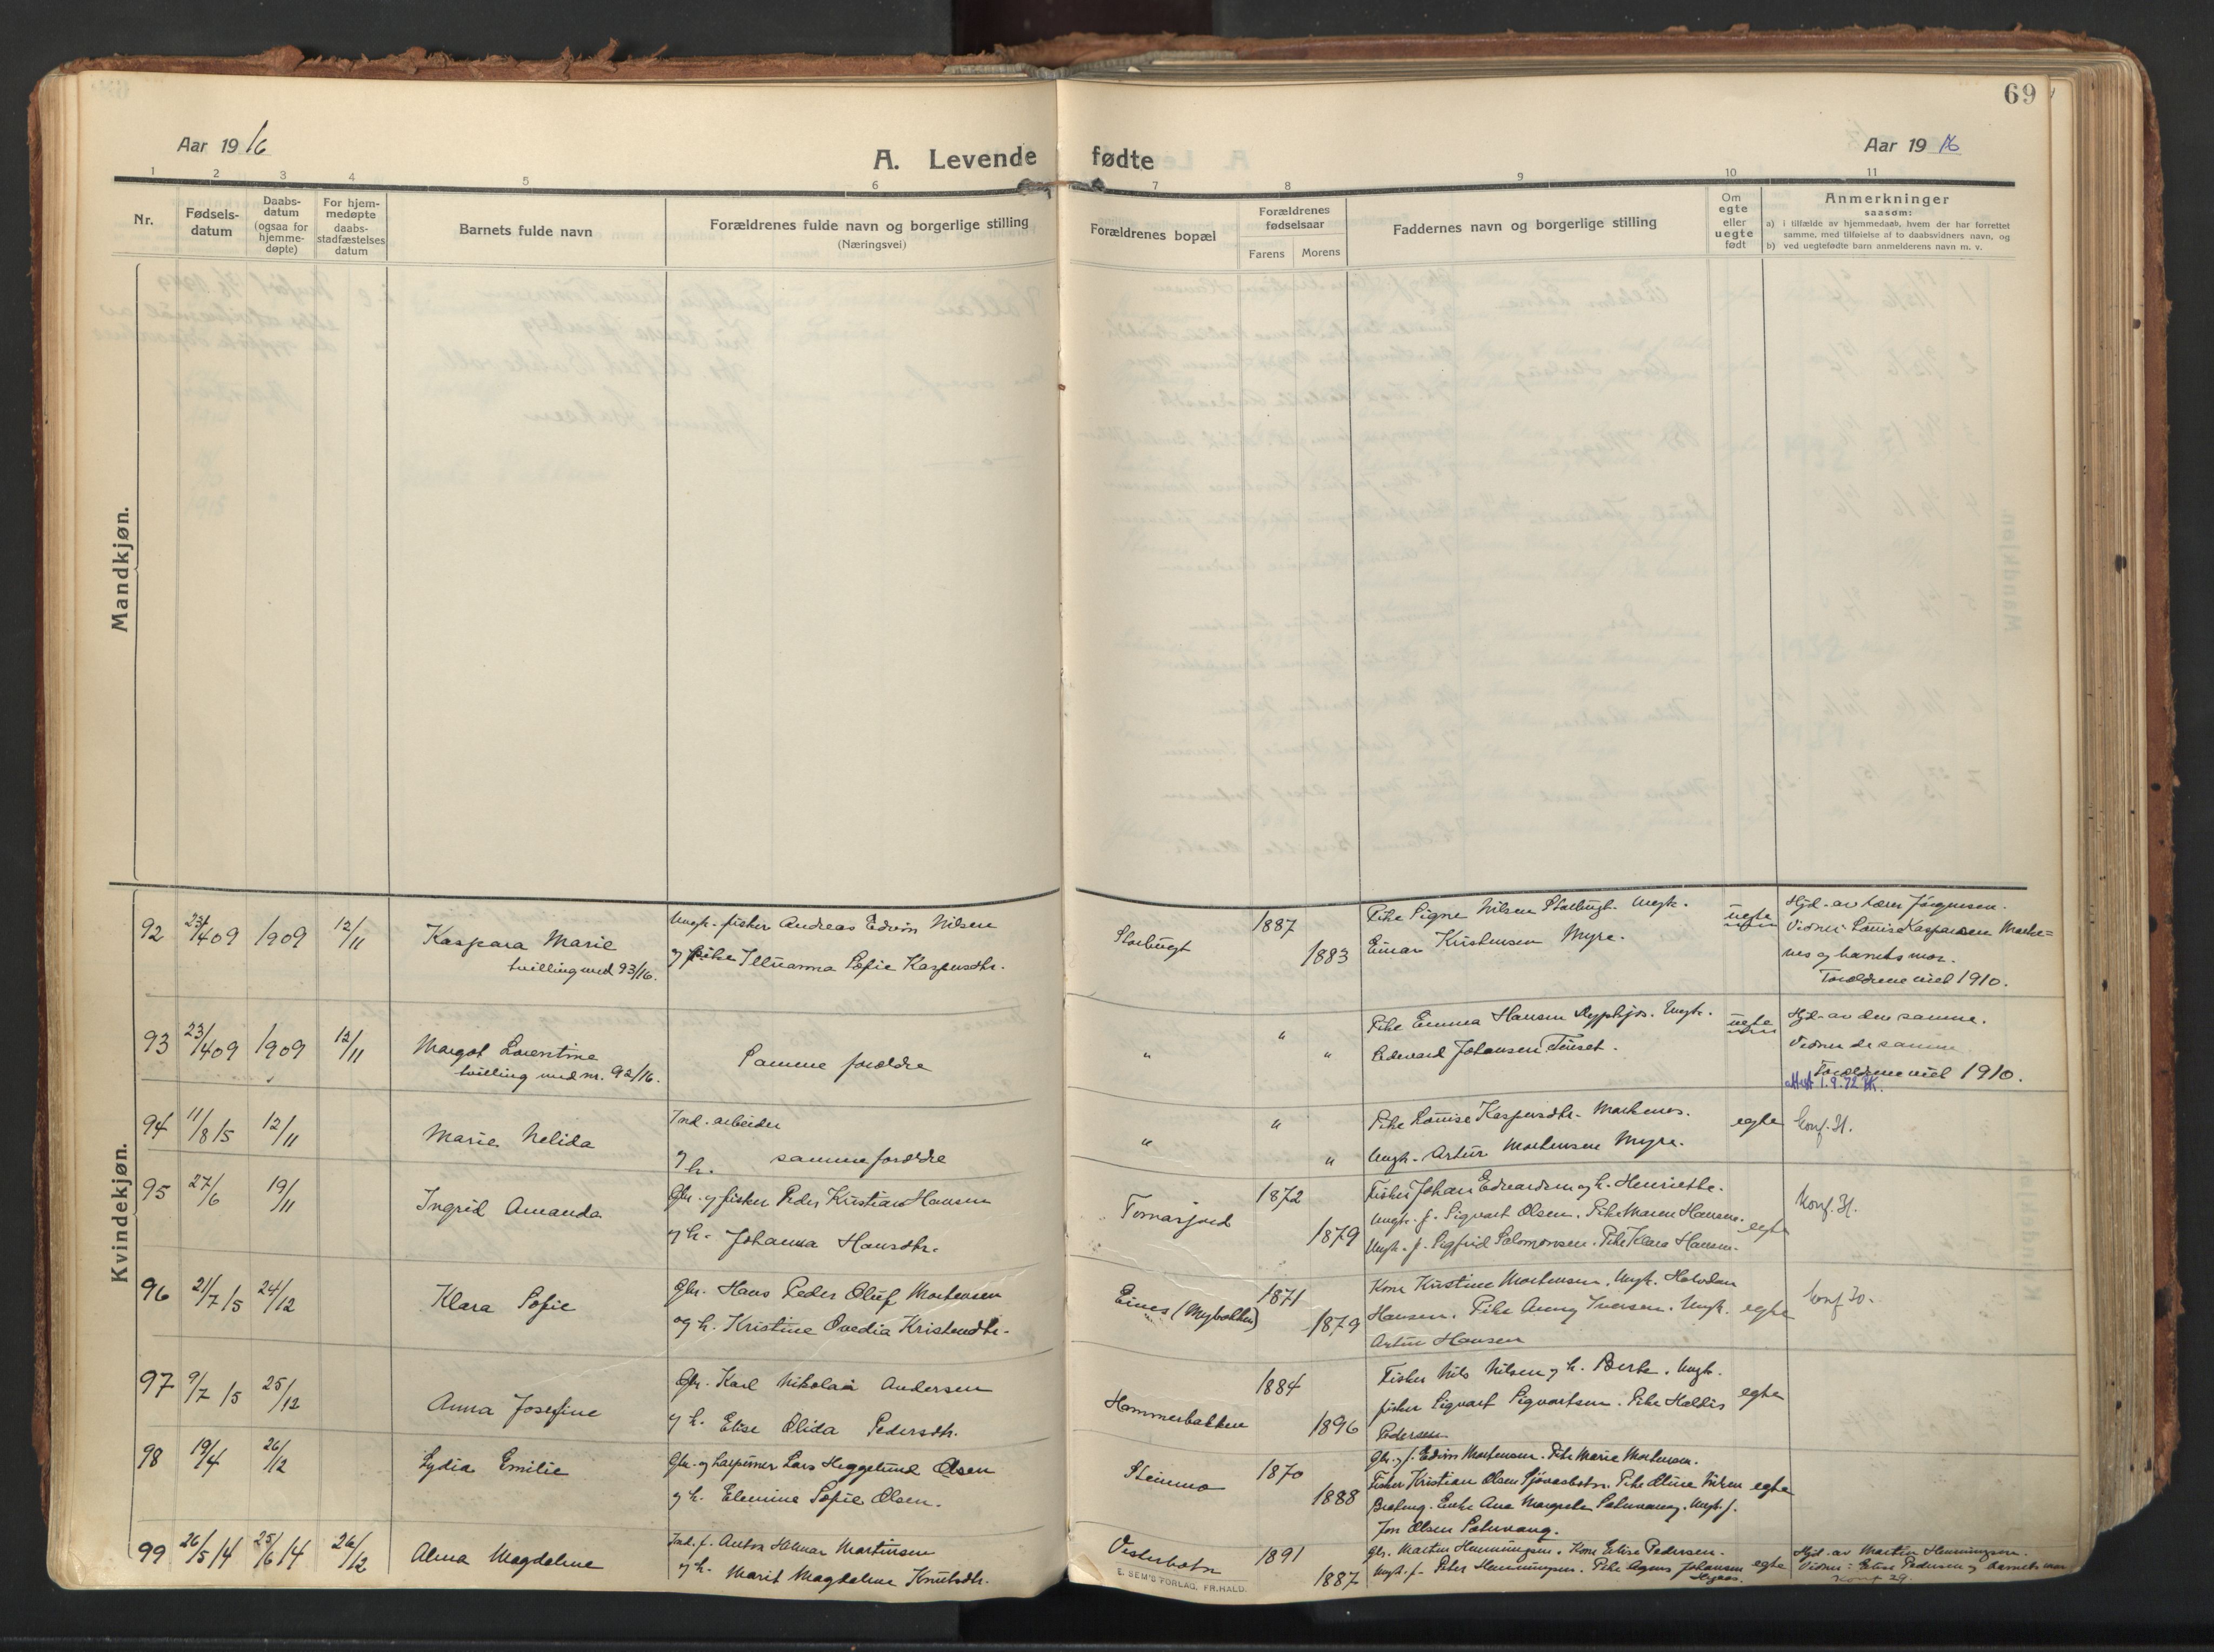 69
Aar 19 16
A. Levende fødte
Aar 19 16
1 2 3 4 5 6 7 8 9 10 11
Nr.
Fødsels-
datum
Daabs-
datum
(ogsaa for
hjemme-
døpte)
For hjem-
medøpte
daabs-
stadfæstelses
datum
Barnets fulde navn
Forældrenes fulde navn og borgerlige stilling
(Næringsvei)
Forældrenes bopæl
Forældrenes
fødselsaar
Farens Morens
Faddernes navn og borgerlige stilling
Om
egte
eller
uegte
født
Anmerkninger
saasom:
a) i tilfælde av hjemmedaab, hvem der har forrettet
samme, med tilføielse af to daabsvidners navn, og
b) ved uegtefødte barn anmelderens navn m. v.
Mandkjøn.
Kvindekjøn.
92 23/4 09 1909 12/11 Kaspara Marie
tvilling med 93/16.
Ungk. fisker Andreas Edvin Nilsen
og pike Sofie Kaspersdtr.
Storbugt 1887
1883
Pike Signe Nilsen Storbugt. Ungk.
Einar Kristensen Myre.
uegte
Hjd. av lærer Jørgensen.
Vidner: Louise Kaspersen Marke=
nes og barnets mor.
Forældrene viet 1910.
93 23/4 09 1909 12/11 Margot Lorentine
tvilling med nr. 92/16.
Samme forældre
" " "
Pike Emma Hansen Ryphjos. Ungk.
Edevard Johansen Finset.
uegte
Hjd. av den samme.
Vidner de samme
Forældrene viet 1910.
attest 1.9.72
94 11/8 15 12/11 Marie Nelida
Ind. arbeider
og h. samme forældre
" " "
Pike Louise Kaspersdtr. Markenes.
Ungk. Artur Mortensen Myre.
egte
konf. 31.
95 27/6 19/11 Ingrid Amanda
Gbr. og fisker Peder Kristian Hansen
og h. Johanna Hansdtr.
Tomasjord 1872
1879
Fisker Johan Edvardsen og h. Henriette.
Ungk. f. Sigvart Olsen. Pike Maren Hansen.
Ungk. f. Sigfrid Salomonsen. Pike Klara Hansen.
egte
konf. 31.
96 21/7 15 24/12 Klara Sofie
Gbr. Hans Peder Oluf Mortensen
og h. Kristine Ovedia Kristendtr.
Eines (Mybakken) 1871
1879
Kone Kristine Mortensen. Ungk. Halvdan
Hansen. Pike Anny Iversen. Ungk.
Artur Hansen
egte
konf 30.
97 9/7 15 25/12 Anna Josefine
Gbr. Karl Nikolai Andersen
og h. Elise Olida Pedersdtr.
Hammerbakken 1884
1896
Fisker Nils Nilsen og h. Berte. Ungk.
fisker Sigvart Sigvartsen. Pike Haldis
Pedersen
egte
98 19/4 26/12 Lydia Emilie
Gbr. og Lars Heggelund Olsen
og h. Elenine Sofie Olsen.
Steinmo 1870
1888
Gbr. og f. Edvin Mortensen. Pike Marie Mortensen.
Fisker Kristian Olsen Sjøvasbotn. Pike Oline
Enke Ane Margrete Ungk. f.
Jon Olsen
egte
99 26/5 14 25/6 14 26/12 Alma Magdalene
Ind. f. Anton Hilmar Martinsen
og h. Marit Magdalene Knutsdtr.
Vesterbotn 1891
1887
Gbr. Martin Henningsen. Kone Elise Pedersen.
Ungk. f. Peter Henningsen. Pike Agnes Johansen
egte
Hjd. av Martin Henningsen.
Vidner: Elise Pedersen og barnets mor
konf 29.
E. SEM'S FORLAG, FR.HALD.